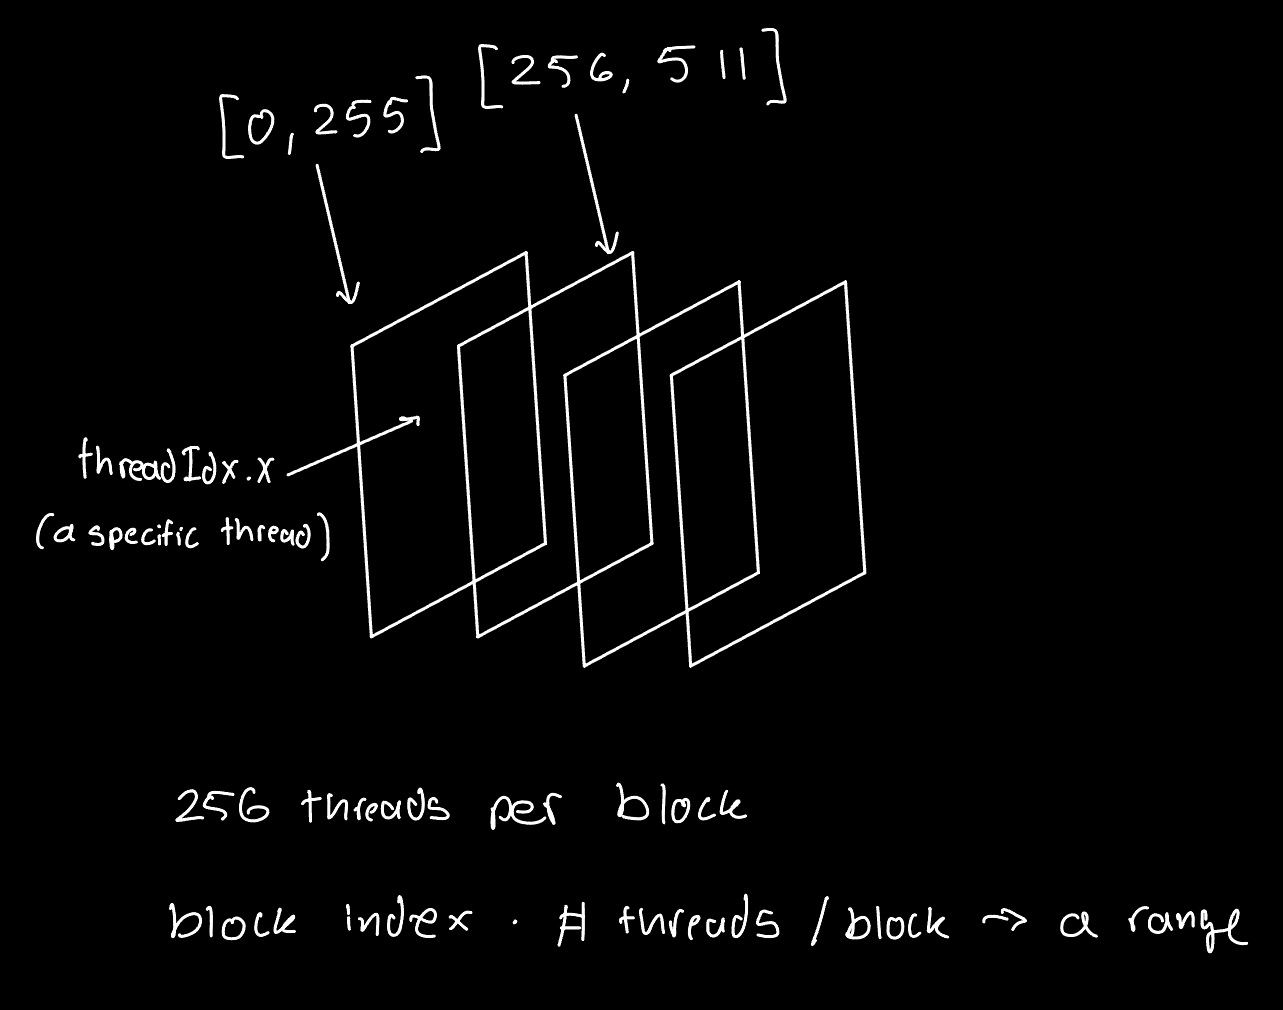 [0, 255]
[256, 511]
threadIdx.x
(a specific thread)
256 threads per block
block index · # threads / block → a range